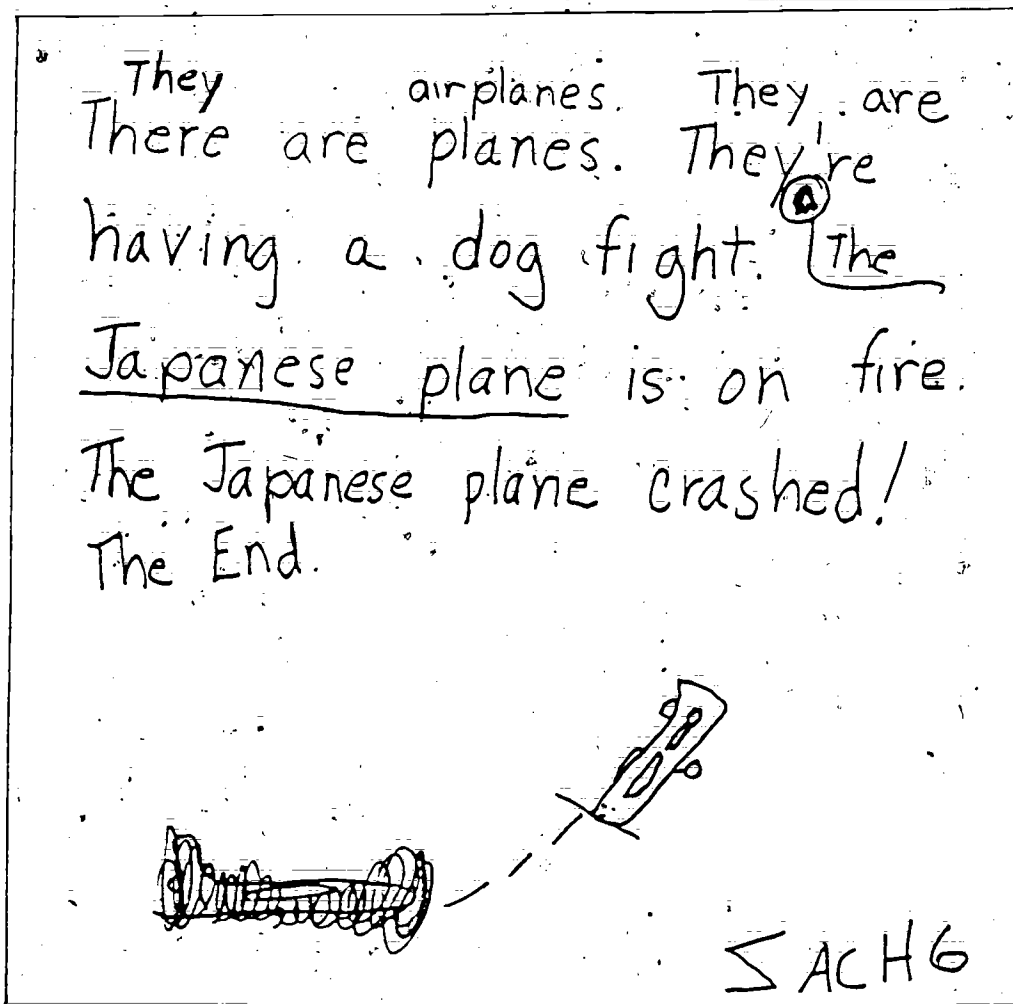 They airplanes. They are
There are planes. They're
having a dog fight. The
Japanese plane is on fire.
The Japanese plane crashed!
The End.
SACH6